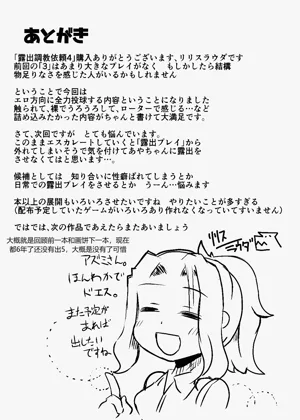 あとがき
「露出調教依頼4」購入ありがとうございます、リリスラウダです
前回の「3」はあまり大きなプレイがなく　もしかしたら結構
物足りなさを感じた人がいるかもしれません
ということで今回は
エロ方向に全力投球する内容ということになりました
触られて、裸でうろうろして、ローターで感じる…など
詰め込みたかった内容がちゃんと書けて大満足です。
さて、次回ですが　とても悩んでいます。
このままエスカレートしていくと「露出プレイ」から
外れてしまいそうで気を付けてあやちゃんに露出を
させなくてはと思います…。
候補としては　知り合いに性癖ばれてしまうとか
日常での露出プレイをさせるとか　うーん…悩みます
本以上の展開もいろいろさせたいですね　やりたいことが多すぎる
(配布予定していたゲームがいろいろあり作れなくなっていてすいません)
ではでは、次の作品であえたらまたあいましょう
大概就是回顾前一本和画饼下一本，现在
都6年了还没有出5，大概是没有了可惜
リリス
ラウダ
アズミさん。
ほんわかで
ドエス。
また予定が
あれば
出したい
ですね